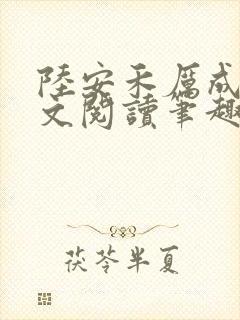 陸安禾厲成
文閱讀筆趣
茯苓半夏